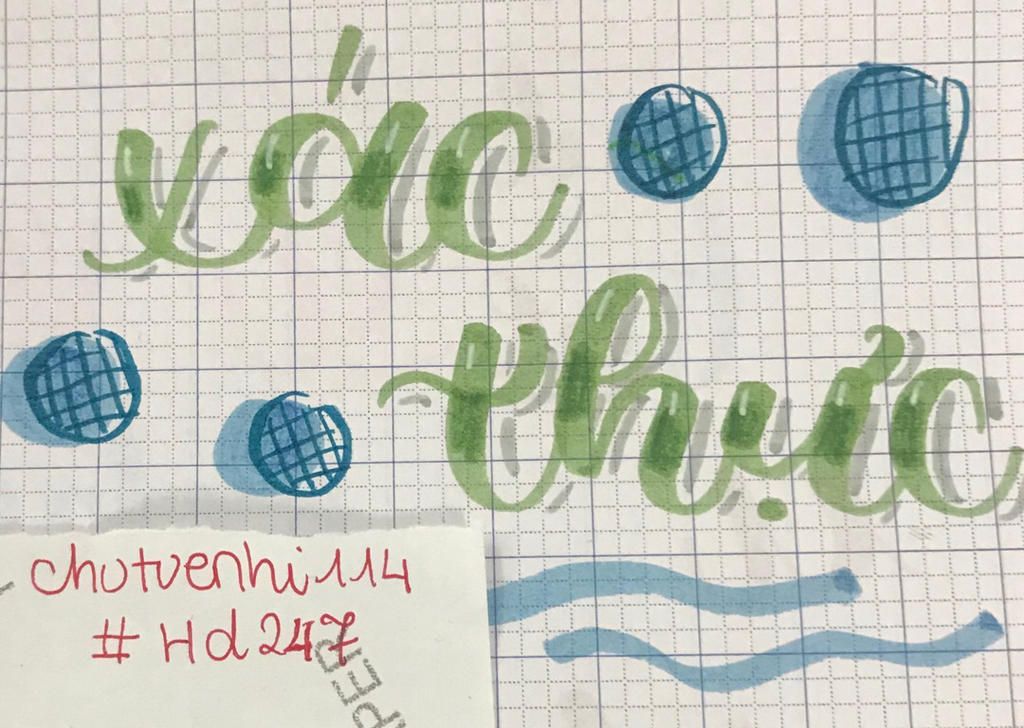 xác
thực
chutvenhi114
# Hd247